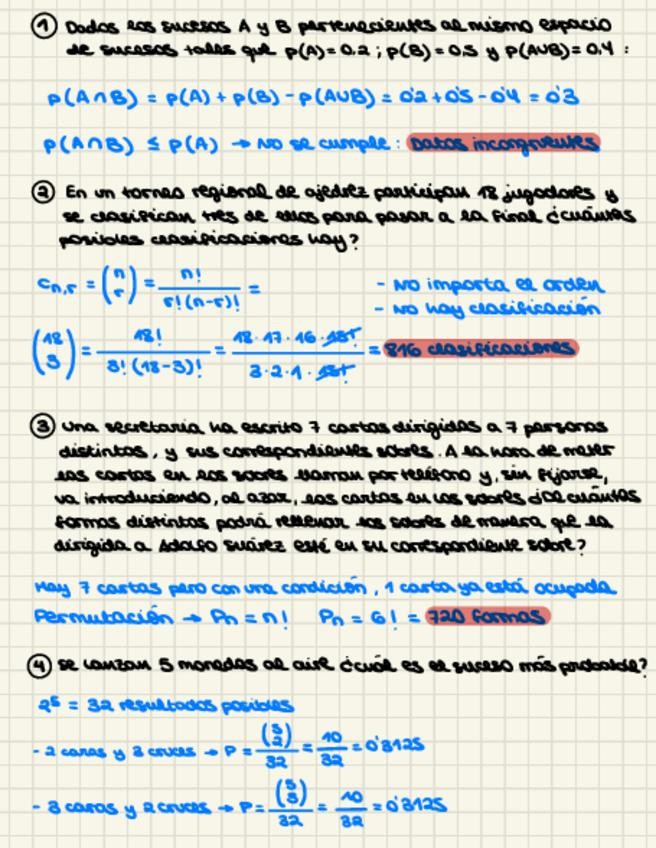 ① Dados los sucesos A y B pertenecientes al mismo espacio
de sucesos tales que p(A)=0,2 ; p(B)=0,5 y p(A∪B)=0,4 :
p(A∩B) = p(A) + p(B) - p(A∪B) = 0'2 + 0'5 - 0'4 = 0'3
p(A∩B) ≤ p(A) → No se cumple : Datos incongruentes
② En un torneo regional de ajedrez participan 18 jugadores y
se clasifican tres de ellos para pasar a la final ¿cuántas
posibles clasificaciones hay?
C_{n,r} = (n r) = n! / r!(n-r)! =
- No importa el orden
- No hay clasificación
(18 3) = 18! / 3!(18-3)! = 18·17·16·15! / 3·2·1·15! = 816 clasificaciones
③ Una secretaria ha escrito 7 cartas dirigidas a 7 personas
distintas, y sus correspondientes sobres. A la hora de meter
las cartas en los sobres llaman por teléfono y, sin fijarse,
va introduciendo, al azar, las cartas en los sobres ¿de cuántas
formas distintas podrá rellenar los sobres de manera que la
dirigida a Adolfo Suárez esté en su correspondiente sobre?
Hay 7 cartas pero con una condición, 1 carta ya está ocupada
Permutación → Pn = n! Pn = 6! = 720 formas
④ Se lanzan 5 monedas al aire ¿cuál es el suceso más probable?
2⁵ = 32 resultados posibles
- 2 caras y 3 cruces → P = (5 2) / 32 = 10/32 = 0'3125
- 3 caras y 2 cruces → P = (5 3) / 32 = 10/32 = 0'3125